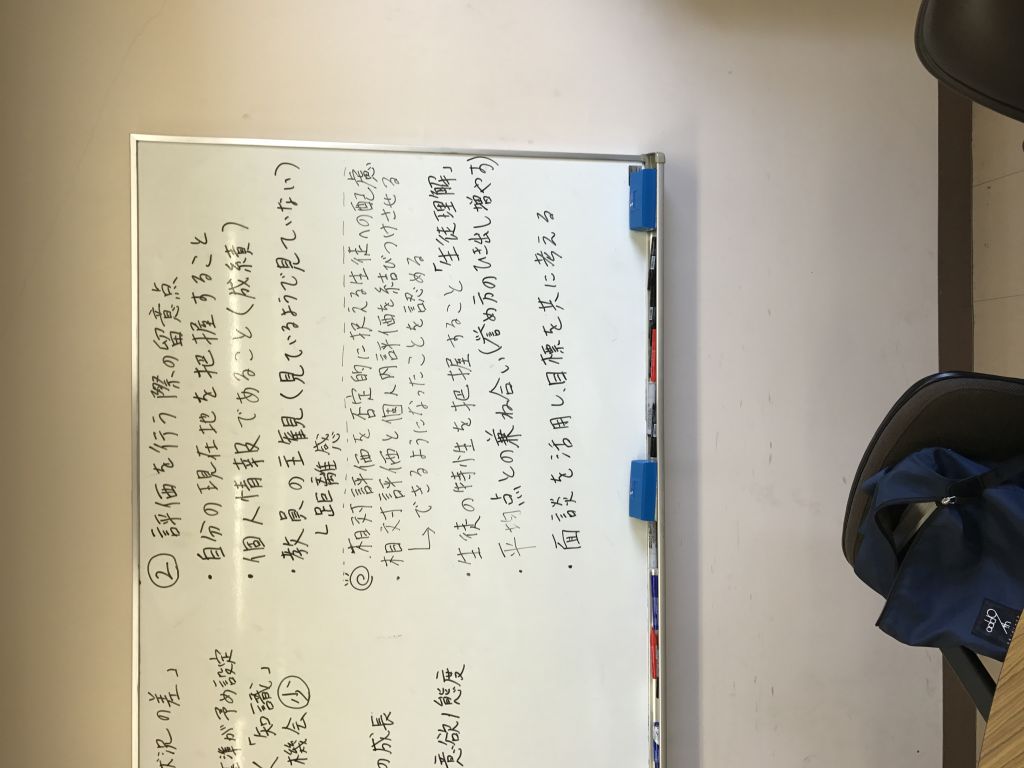 ② 評価を行う際の留意点
・自分の現在地を把握すること
・個人情報であること(成績)
・教員の主観(見ているようで見ていない)
└距離感
◎相対評価を否定的に捉える生徒への配慮
・相対評価と個人内評価を結びつけさせる
↳できるようになったことを認める
・生徒の特性を把握すること「生徒理解」
・平均点との兼ね合い(誉め方のひき出し増やす)
・面談を活用し、目標を共に考える
状況の差」
準が予め設定
「知識」
機会 少
の成長
意欲/態度